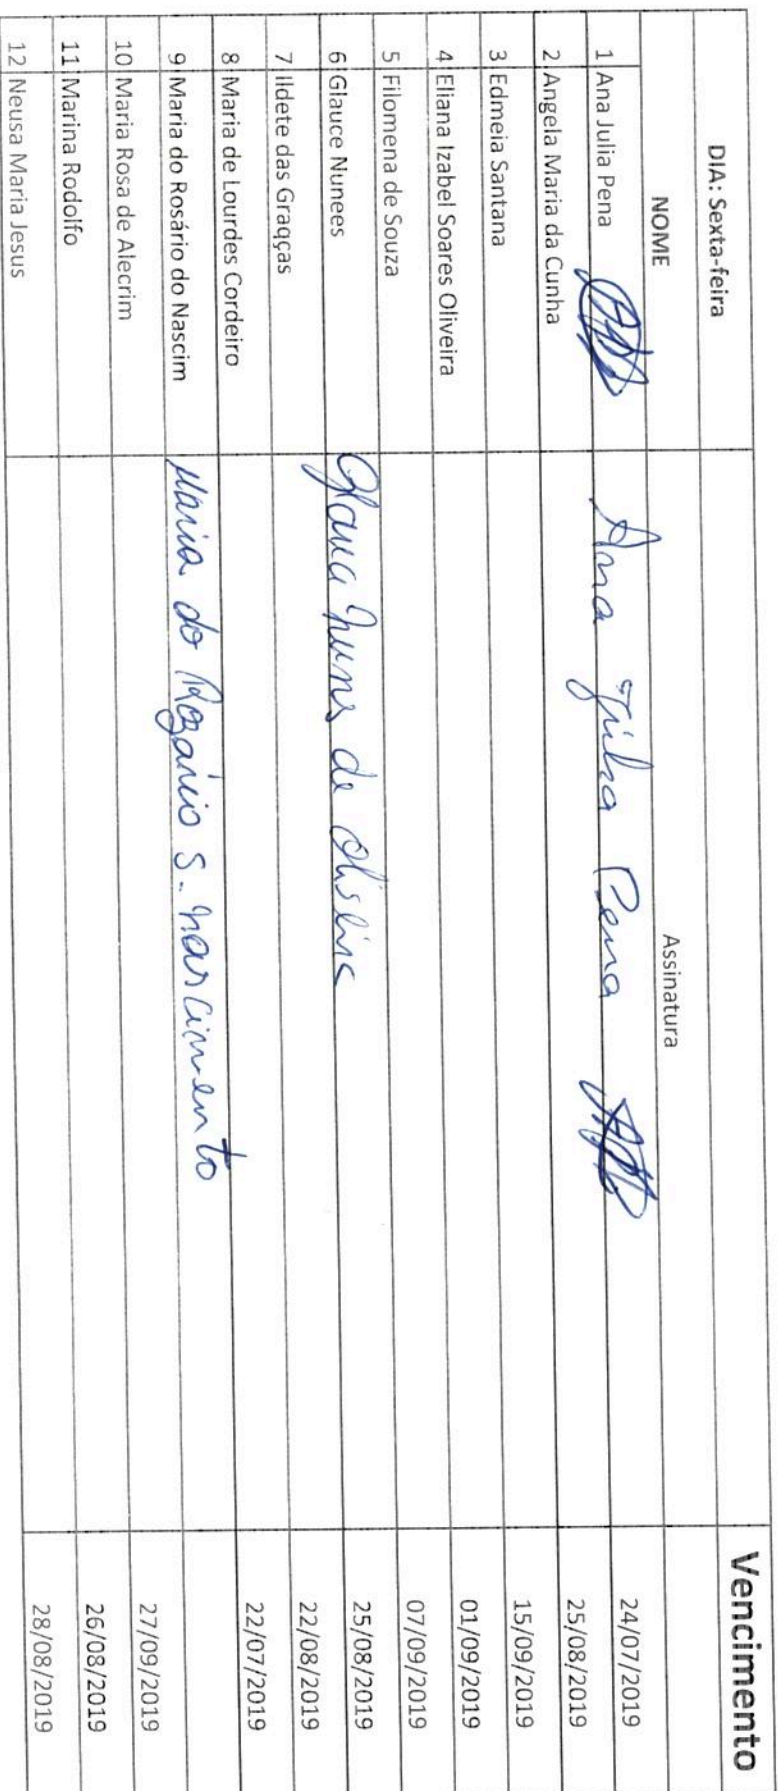 DIA: Sexta-feira Vencimento
NOME Assinatura
1 Ana Julia Pena Ana Julia Pena 24/07/2019
2 Angela Maria da Cunha 25/08/2019
3 Edmeia Santana 15/09/2019
4 Eliana Izabel Soares Oliveira 01/09/2019
5 Filomena de Souza 07/09/2019
6 Glauce Nunees Glauce Nunes de Oliveira 25/08/2019
7 Ildete das Graqças 22/08/2019
8 Maria de Lourdes Cordeiro 22/07/2019
9 Maria do Rosário do Nascim Maria do Rozário S. Nascimento
10 Maria Rosa de Alecrim 27/09/2019
11 Marina Rodolfo 26/08/2019
12 Neusa Maria Jesus 28/08/2019